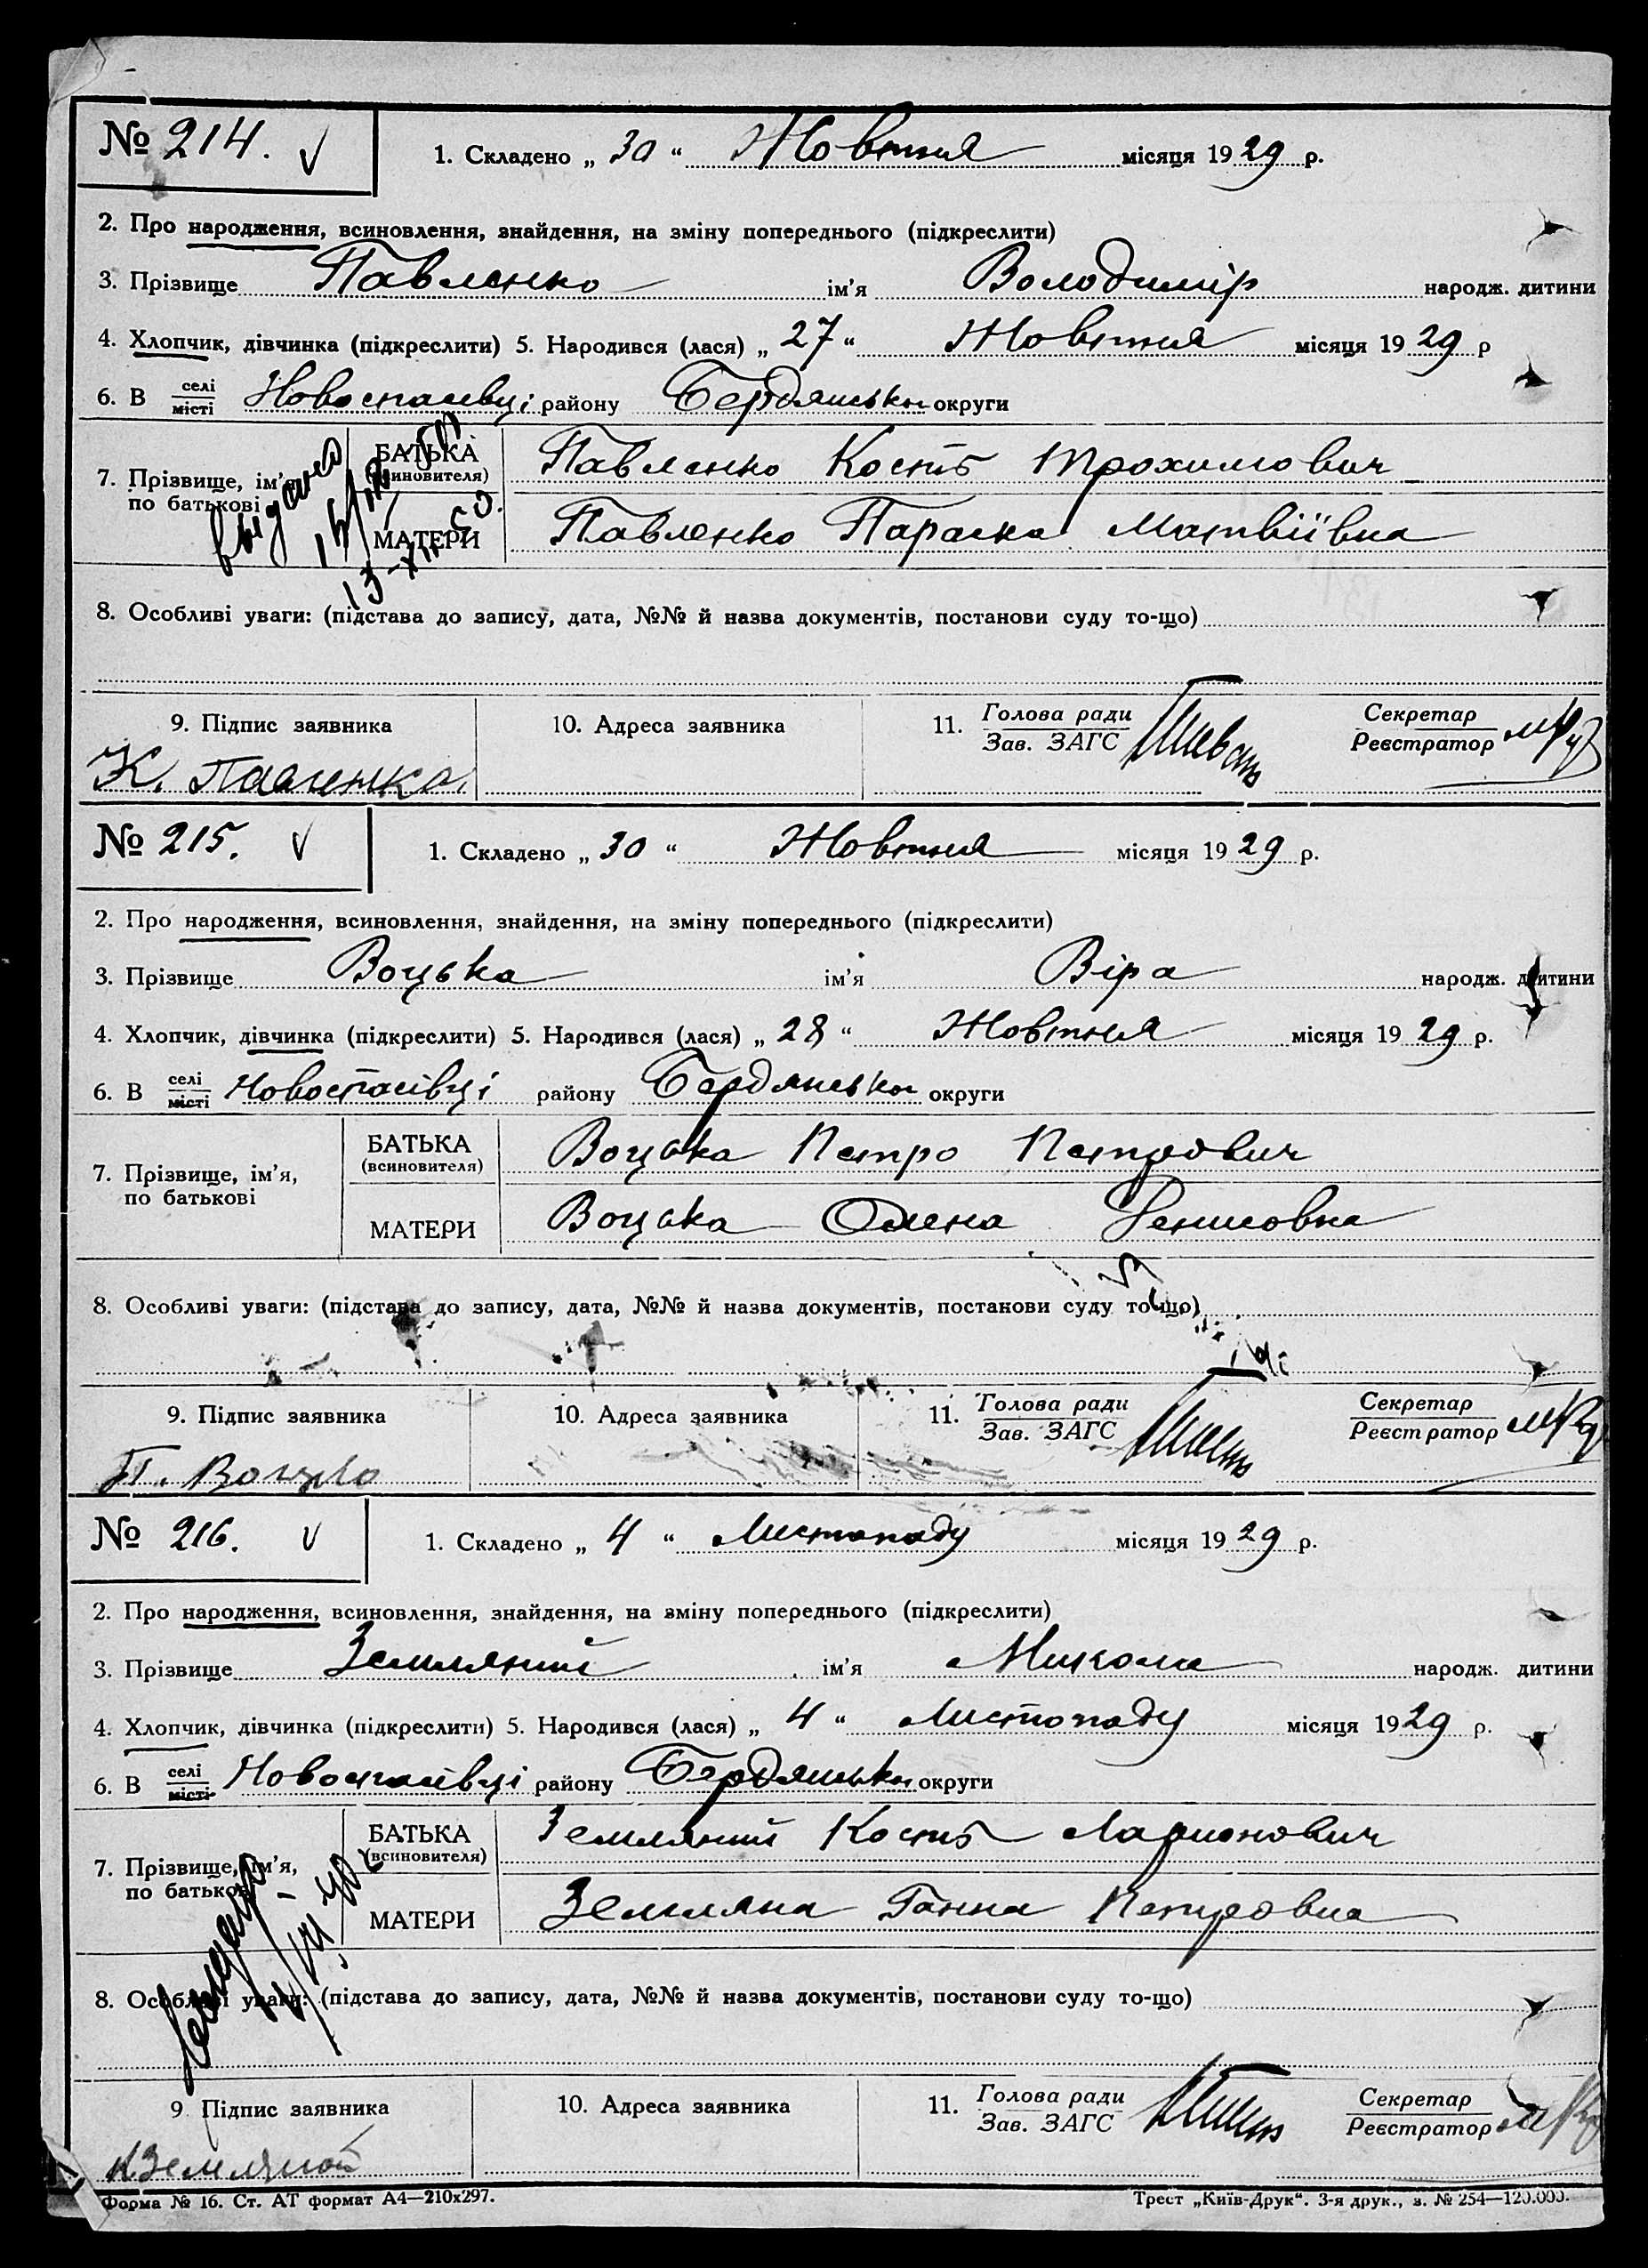 № 214. V 1. Складено „ 30 “ Жовтня місяця 1929 р.
2. Про народження, всиновлення, знайдення, на зміну попереднього (підкреслити)
3. Прізвище Павленко ім'я Володимір народж. дитини
4. Хлопчик, дівчинка (підкреслити) 5. Народився (лася) „ 27 “ Жовтня місяця 1929 р
6. В селі місті Новоспасівці району Бердянської округи
7. Прізвище, ім'я по батькові БАТЬКА (всиновителя) Павленко Кость Трохимович
МАТЕРИ Павленко Параска Матвіївна
8. Особливі уваги: (підстава до запису, дата, №№ й назва документів, постанови суду то-що)
9. Підпис заявника 10. Адреса заявника 11. Голова ради Зав. ЗАГС Секретар Реєстратор
К. Павленко.
№ 215. V 1. Складено „ 30 “ Жовтня місяця 1929 р.
2. Про народження, всиновлення, знайдення, на зміну попереднього (підкреслити)
3. Прізвище Воцька ім'я Віра народж. дитини
4. Хлопчик, дівчинка (підкреслити) 5. Народився (лася) „ 28 “ Жовтня місяця 1929 р.
6. В селі місті Новоспасівці району Бердянської округи
7. Прізвище, ім'я, по батькові БАТЬКА (всиновителя) Воцька Петро Петрович
МАТЕРИ Воцька Олена Денисовна
8. Особливі уваги: (підстава до запису, дата, №№ й назва документів, постанови суду то-що)
9. Підпис заявника 10. Адреса заявника 11. Голова ради Зав. ЗАГС Секретар Реєстратор
№ 216. V 1. Складено „ 4 “ Листопаду місяця 1929 р.
2. Про народження, всиновлення, знайдення, на зміну попереднього (підкреслити)
3. Прізвище Земляний ім'я Микола народж. дитини
4. Хлопчик, дівчинка (підкреслити) 5. Народився (лася) „ 4 “ Листопаду місяця 1929 р.
6. В селі місті Новоспасівці району Бердянської округи
7. Прізвище, ім'я, по батькові БАТЬКА (всиновителя) Земляний Кость Ларионович
МАТЕРИ Земляна Ганна Петровна
8. Особливі уваги: (підстава до запису, дата, №№ й назва документів, постанови суду то-що)
9. Підпис заявника 10. Адреса заявника 11. Голова ради Зав. ЗАГС Секретар Реєстратор
К Земляной
Форма № 16. Ст. АТ формат А4—210х297. Трест „Київ-Друк“. 3-я друк., з. № 254—120.000.